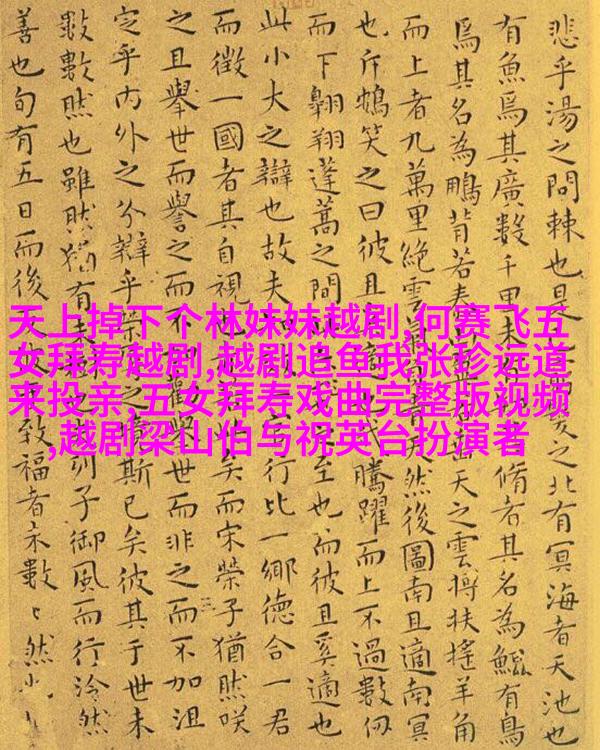 天上掉下个林妹妹越剧,何赛飞五
女拜寿越剧,越剧追鱼我张珍远道
来投亲,五女拜寿戏曲完整版视频
,越剧梁山伯与祝英台扮演者
悲乎湯之問棘也是之北有冥海者天池也
有魚焉其廣數千里未有脩者其名為鯤有鳥
焉其名為鵬背若泰天之雲摶扶搖羊角
而上者九萬里絕雲然後圖南且適南冥
也斥鴳笑之曰彼且騰躍而上不過數仞
而下翱翔蓬蒿之間至也而彼且奚適也
此小大之辯也故夫行比一鄉德合一君
而徵一國者其自視也矣而宋榮子猶然咲
之且舉世而譽之而不勸舉世而非之而不加沮
定乎內外之分辯乎榮之境斯已矣彼其于世未
數數然也雖然猶有未列子御風而行泠然
善也旬有五日而後致福者未數〻然